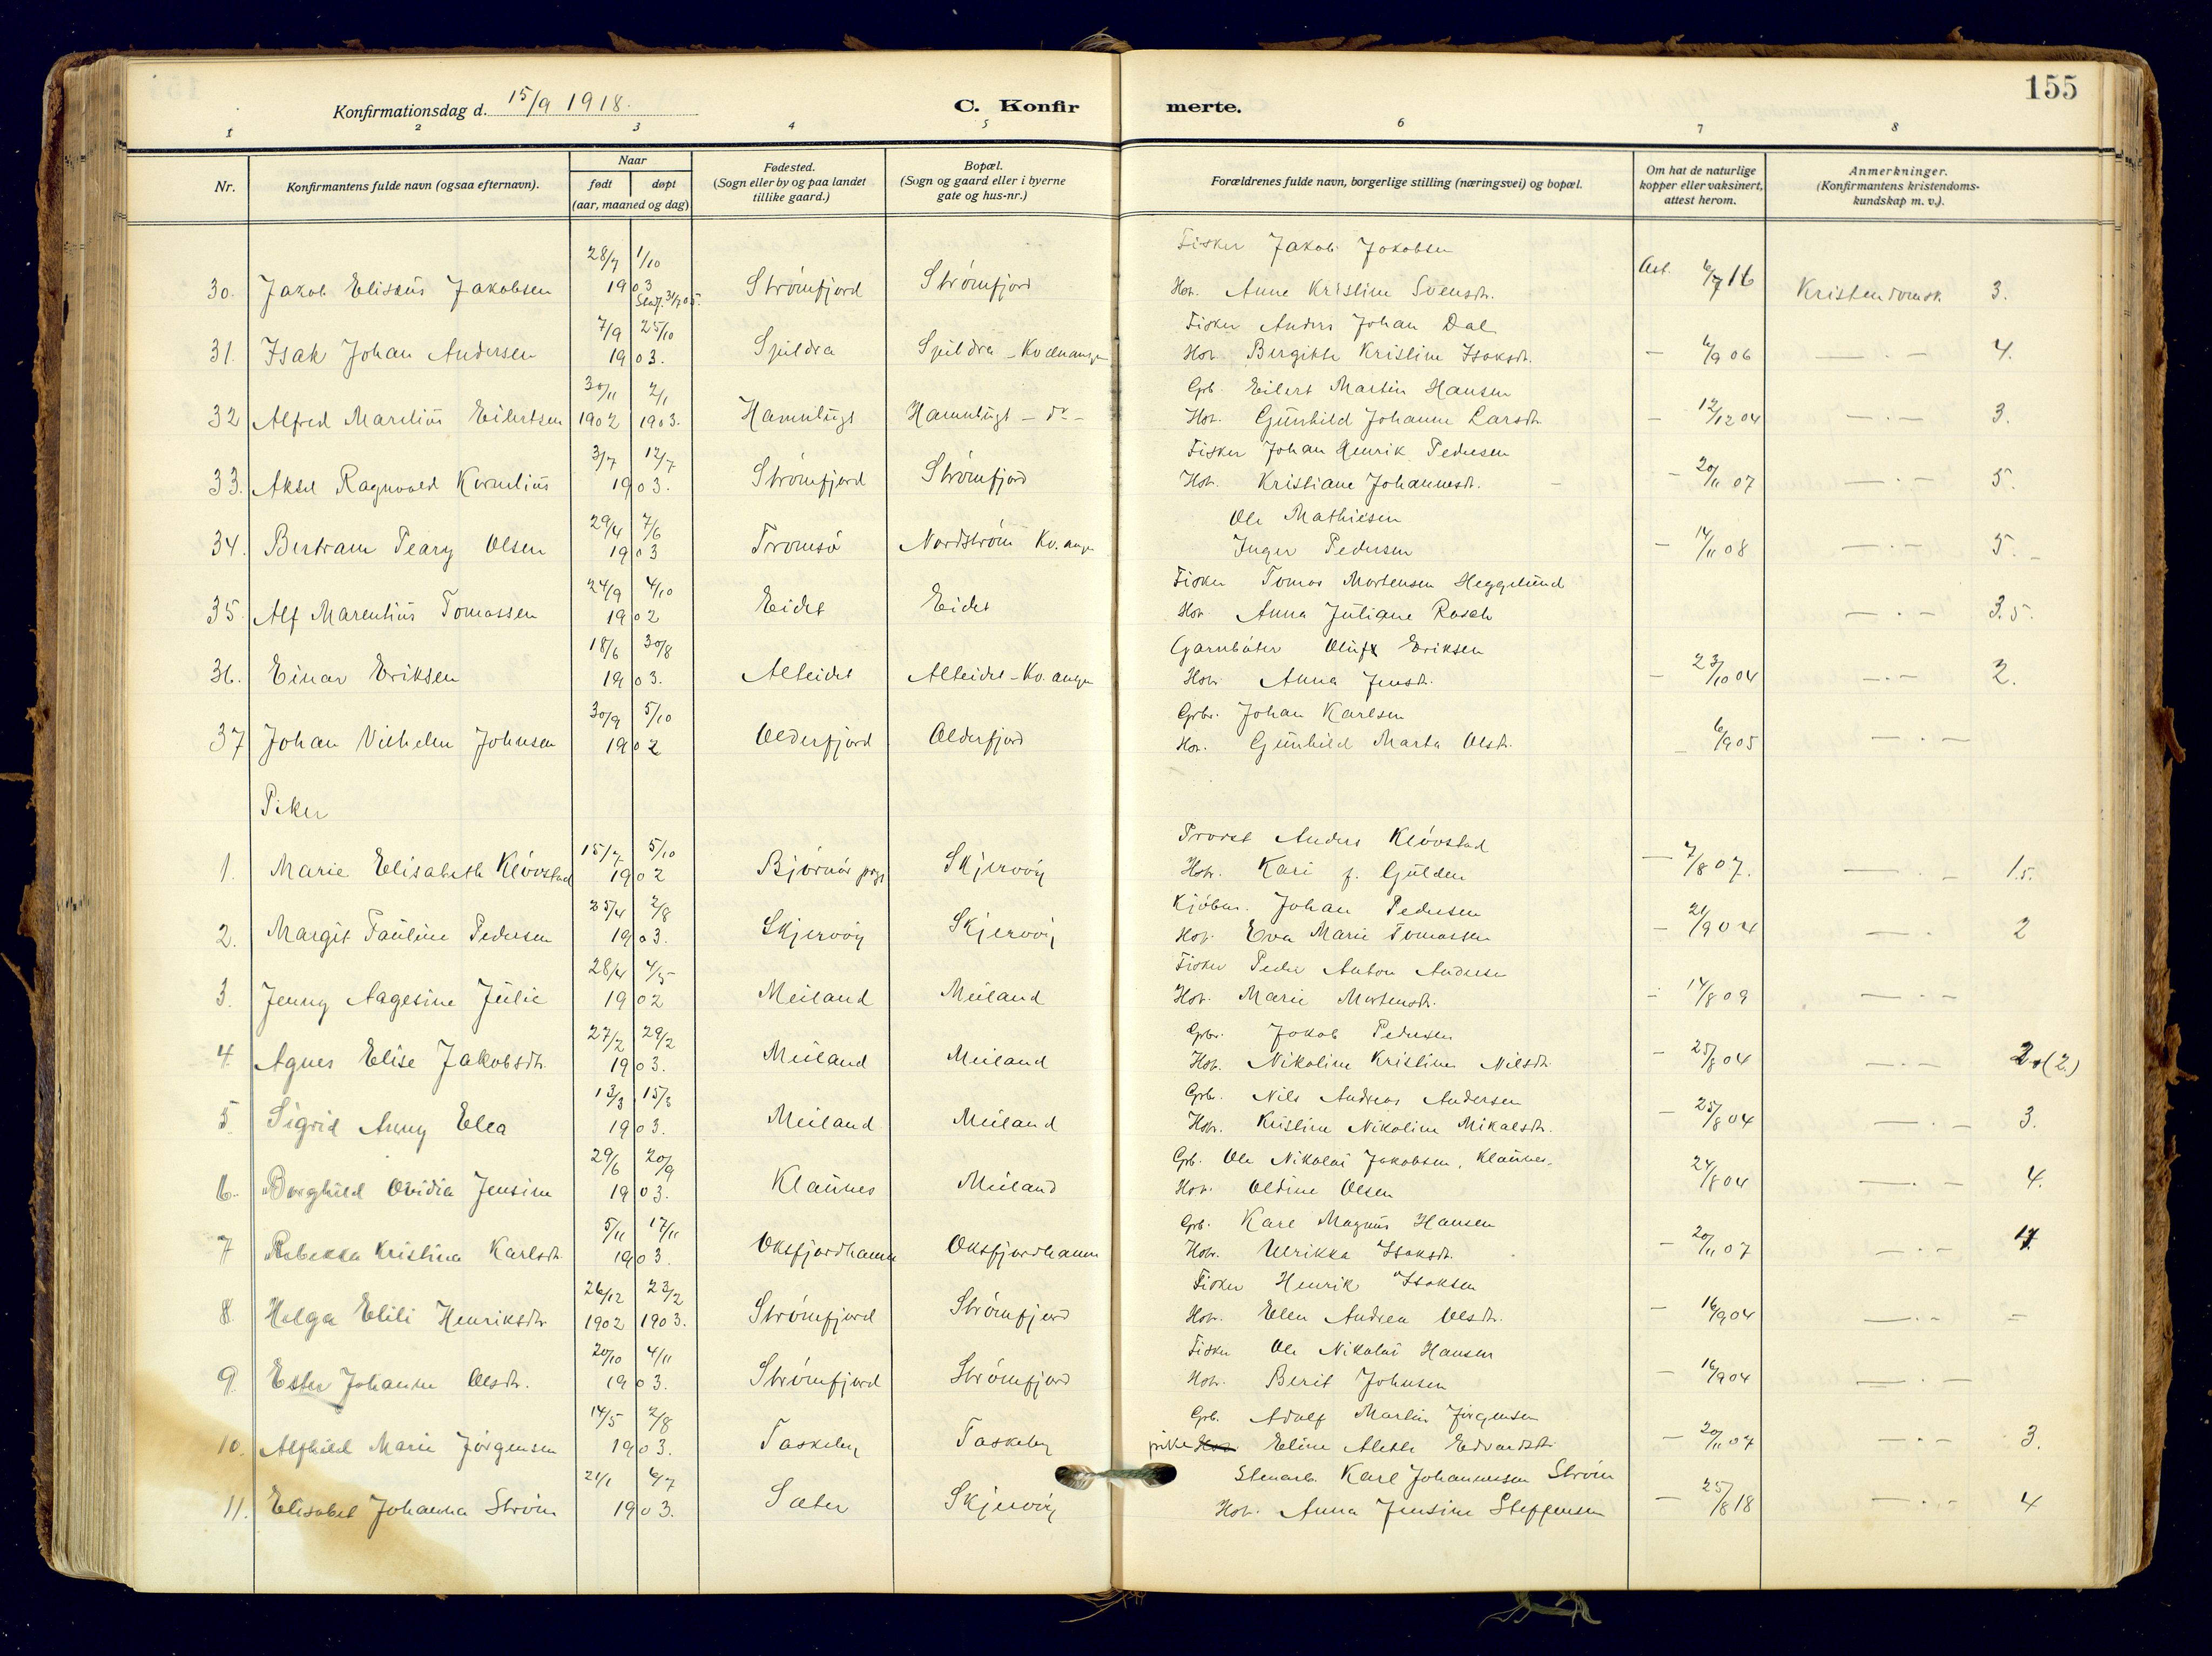 155
Konfirmationsdag d. 15/9 1918.
C. Konfir merte.
1 2 3 4 5 6 7 8
Nr. Konfirmantens fulde navn (ogsaa efternavn). Naar født døpt (aar, maaned og dag) Fødested. (Sogn eller by og paa landet tillike gaard.) Bopæl. (Sogn og gaard eller i byerne gate og hus-nr.) Forældrenes fulde navn, borgerlige stilling (næringsvei) og bopæl. Om hat de naturlige kopper eller vaksinert, attest herom. Anmerkninger. (Konfirmantens kristendoms-kundskap m. v.).
28/7 1/10 Fisker Jakob Jakobsen
30. Jakob Elisæus Jakobsen 1903 Strømfjord Strømfjord Hstr. Anne Kristine Svensdtr. Att. 6/7 16 Kristendomsk. 3.
7/9 25/10 Fisker Anders Johan Dal
31. Isak Johan Andersen 1903. Spildra Spildra - Kvænangen Hstr. Bergitte Kristine Isaksdt. — 6/9 06 — . — 4.
30/11 2/1 Grb. Eilert Martin Hansen
32 Alfred Marelius Eilertsen 1902 1903. Hamnbugt Hamnbugt - do - Hstr. Gunhild Johanne Larsdt. — 12/12 04 — . — 3.
3/7 12/7 Fisker Johan Henrik Pedersen
33. Aksel Ragnvald Kornelius 1903. Strømfjord Strømfjord Hstr. Kristiane Johannesdt. — 20/11 07 — . — 5.
29/4 7/6 Ole Mathisen
34. Bertram Peary Olsen 1903 Tromsø Nordstrøm Kv.ang. Inger Pedersen — 14/11 08 — . — 5.
24/9 4/10 Fisker Tomas Mortensen Heggelund
35. Alf Marentius Tomassen 1902 Eidet Eidet Hstr. Anna Juliane Rasch — . — 3.5.
18/6 30/8 Garnbøter Oluf Eriksen
36. Einar Eriksen 1903. Alteidet Alteidet - Kv.angen Hstr. Anna Jensdt. — 23/10 04 — . — 2.
30/9 5/10 Grbr. Johan Karlsen
37 Johan Vilhelm Johnsen 1902 Olderfjord Olderfjord Hstr. Gunhild Marta Olsdt. — 6/9 05 — . —
Piker
15/7 5/10 Provst Anders Kløvstad
1. Marie Elisabeth Kløvstad 1902 Bjørnør prgj Skjervøy Hstr. Kari f. Gulden — 7/8 07. — . — 1.5.
25/4 2/8 Kjøbm. Johan Pedersen
2. Margit Pauline Pedersen 1903. Skjervøy Skjervøy Hstr. Eva Marie Tomassen — 21/9 04 — . 2
28/4 4/5 Fisker Peder Anton Andersen
3. Jenny Aagesine Julie 1902 Meiland Meiland Hstr. Marie Mortensdt. — 14/8 09 — . —
27/2 29/2 Grbr. Jakob Pedersen
4. Agnes Elise Jakobsdtr. 1903. Meiland Meiland Hstr. Nikoline Kristine Nilsdt. — 25/8 04 — . — 2. (2.)
13/3 15/3 Grb. Nils Andreas Andersen
5 Sigrid Anny Elea 1903. Meiland Meiland Hstr. Kristine Nikoline Mikalsdt. — 25/8 04 — . — 3.
29/6 20/9 Grb. Ole Nikolai Jakobsen, Klaunes.
6. Borghild Ovidia Jensine 1903. Klaunes Meiland Hstr. Oldine Olsen 24/8 04 — . — 4.
5/11 17/11 Grb. Karl Magnus Hansen
7 Rebekka Kristina Karlsdt. 1903. Oksfjordhamn Oksfjordhamn Hstr. Ulrikka Isaksdt. — 20/11 07 — . —
26/12 23/2 Fisker Henrik Isaksen
8. Helga Elili Henriksdtr. 1902 1903. Strømfjord Strømfjord Hstr. Elen Andrea Olsdt. — 16/9 04 — . — =
20/10 4/11 Fisker Ole Nikolai Hansen
9. Ester Johanne Olsdt. 1903. Strømfjord Strømfjord Hstr. Berit Johnsen — 16/9 04 — . —
14/5 2/8 Grb. Adolf Martin Jørgensen
10. Alfhild Marie Jørgensen 1903. Taskeby Taskeby pike Eline Alette Edvardsdt. — 20/11 07 — . — 3.
21/1 6/7 Stenarb. Karl Johannessen Strøm
11. Elisabet Johanna Strøm 1903. Sæter Skjervøy Hstr. Anna Jensine Steffensen — 25/8 18 — . — 4